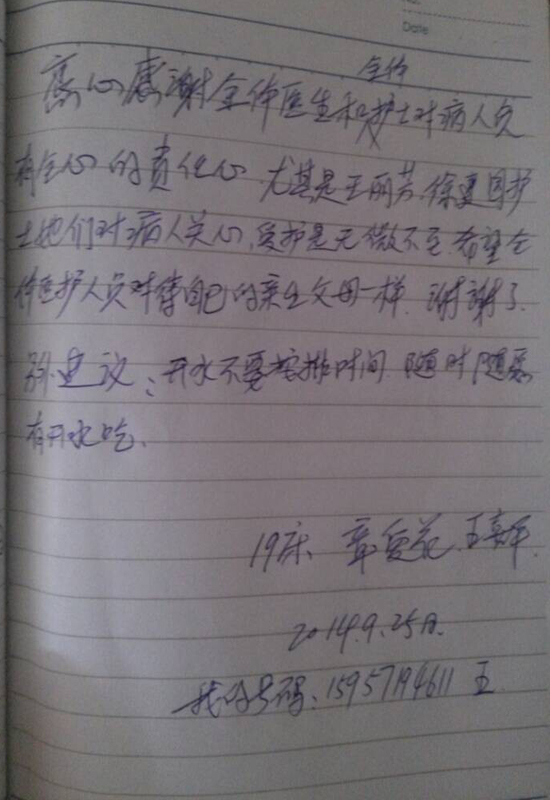 Date
全体
衷心感谢全体医生和护士对病人负
有全心的责任心 尤其是王丽芳、徐夏园护
士她们对病人关心,爱护是无微不至.希望全
体医护人员对待自己的亲生父母一样.谢谢了.
另外建议:开水不要按排时间 随时随意
有开水吃、
19床 章爱花 王
2014.9.25日.
我的号码:15957194611 王